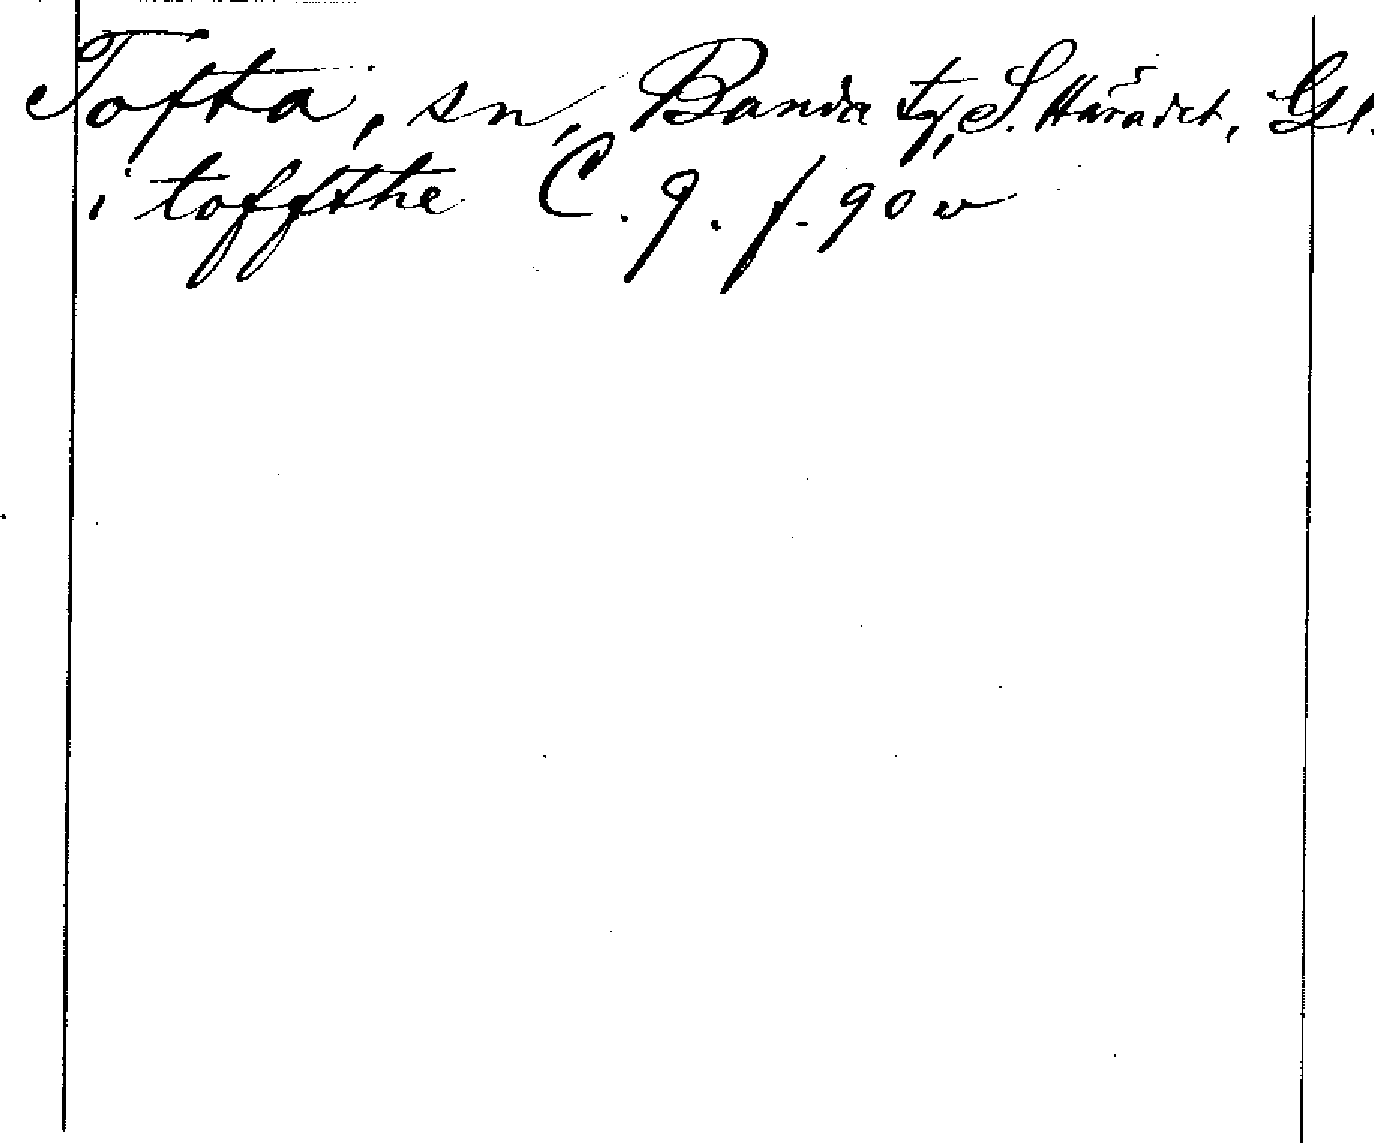 Tofta, sn, Banda tg, S. Häradet, Gl.
i toffthe C. 9. f. 90 v